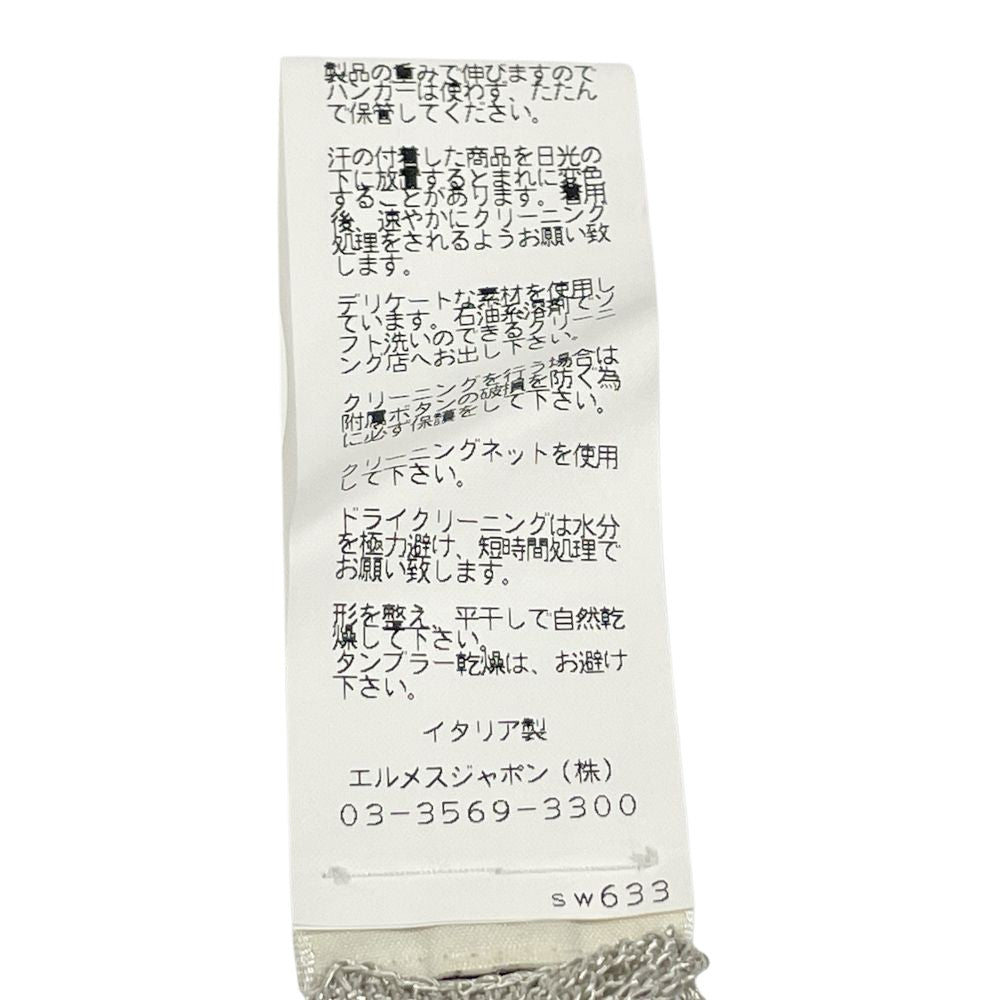 製品の重みで伸びますので
ハンガーは使わず、たたん
で保管してください。
汗の付着した商品を日光の
下に放置するとまれに変色
することがあります。着用
後、速やかにクリーニング
処理をされるようお願い致
します。
デリケートな素材を使用し
ています。石油系溶剤でソ
フト洗いのできるクリーニ
ング店へお出し下さい。
クリーニングを行う場合は
附属ボタンの破損を防ぐ為
に必ず保護をして下さい。
クリーニングネットを使用
して下さい。
ドライクリーニングは水分
を極力避け、短時間処理で
お願い致します。
形を整え、平干しで自然乾
燥して下さい。
タンブラー乾燥は、お避け
下さい。
イタリア製
エルメスジャポン（株）
03-3569-3300
sw633